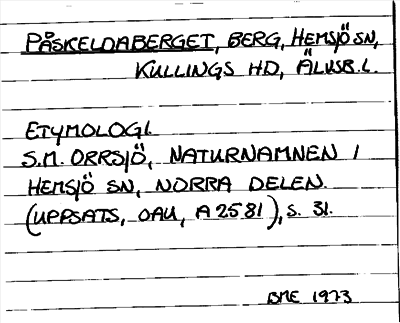 PÅSKELDABERGET, BERG, HEMSJÖ SN,
KULLINGS HD, ÄLVSB. L.
ETYMOLOGI.
S.M. ORRSJÖ, NATURNAMNEN I
HEMSJÖ SN, NORRA DELEN.
(UPPSATS, OAU, A 2581), S. 31.
BME 1973